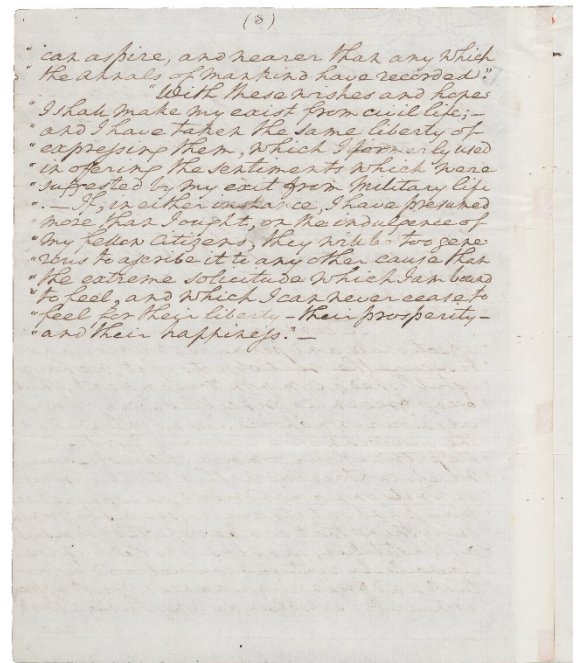 (8)
"can aspire, and nearer than any which
"the annals of mankind have recorded."
"With these wishes and hopes
"I shall make my exist from civil life;—
"and I have taken the same liberty of
"expressing them, which I formerly used
"in offering the sentiments which were
"suggested by my exit from Military life
".— If, in either instance, I have presumed
"more than I ought, on the indulgence of
"my fellow Citizens, they will be too gene
"rous to ascribe it to any other cause than
"the extreme solicitude which I am bound
"to feel, and which I can never cease to
"feel for their liberty — their prosperity —
"and their happiness." —